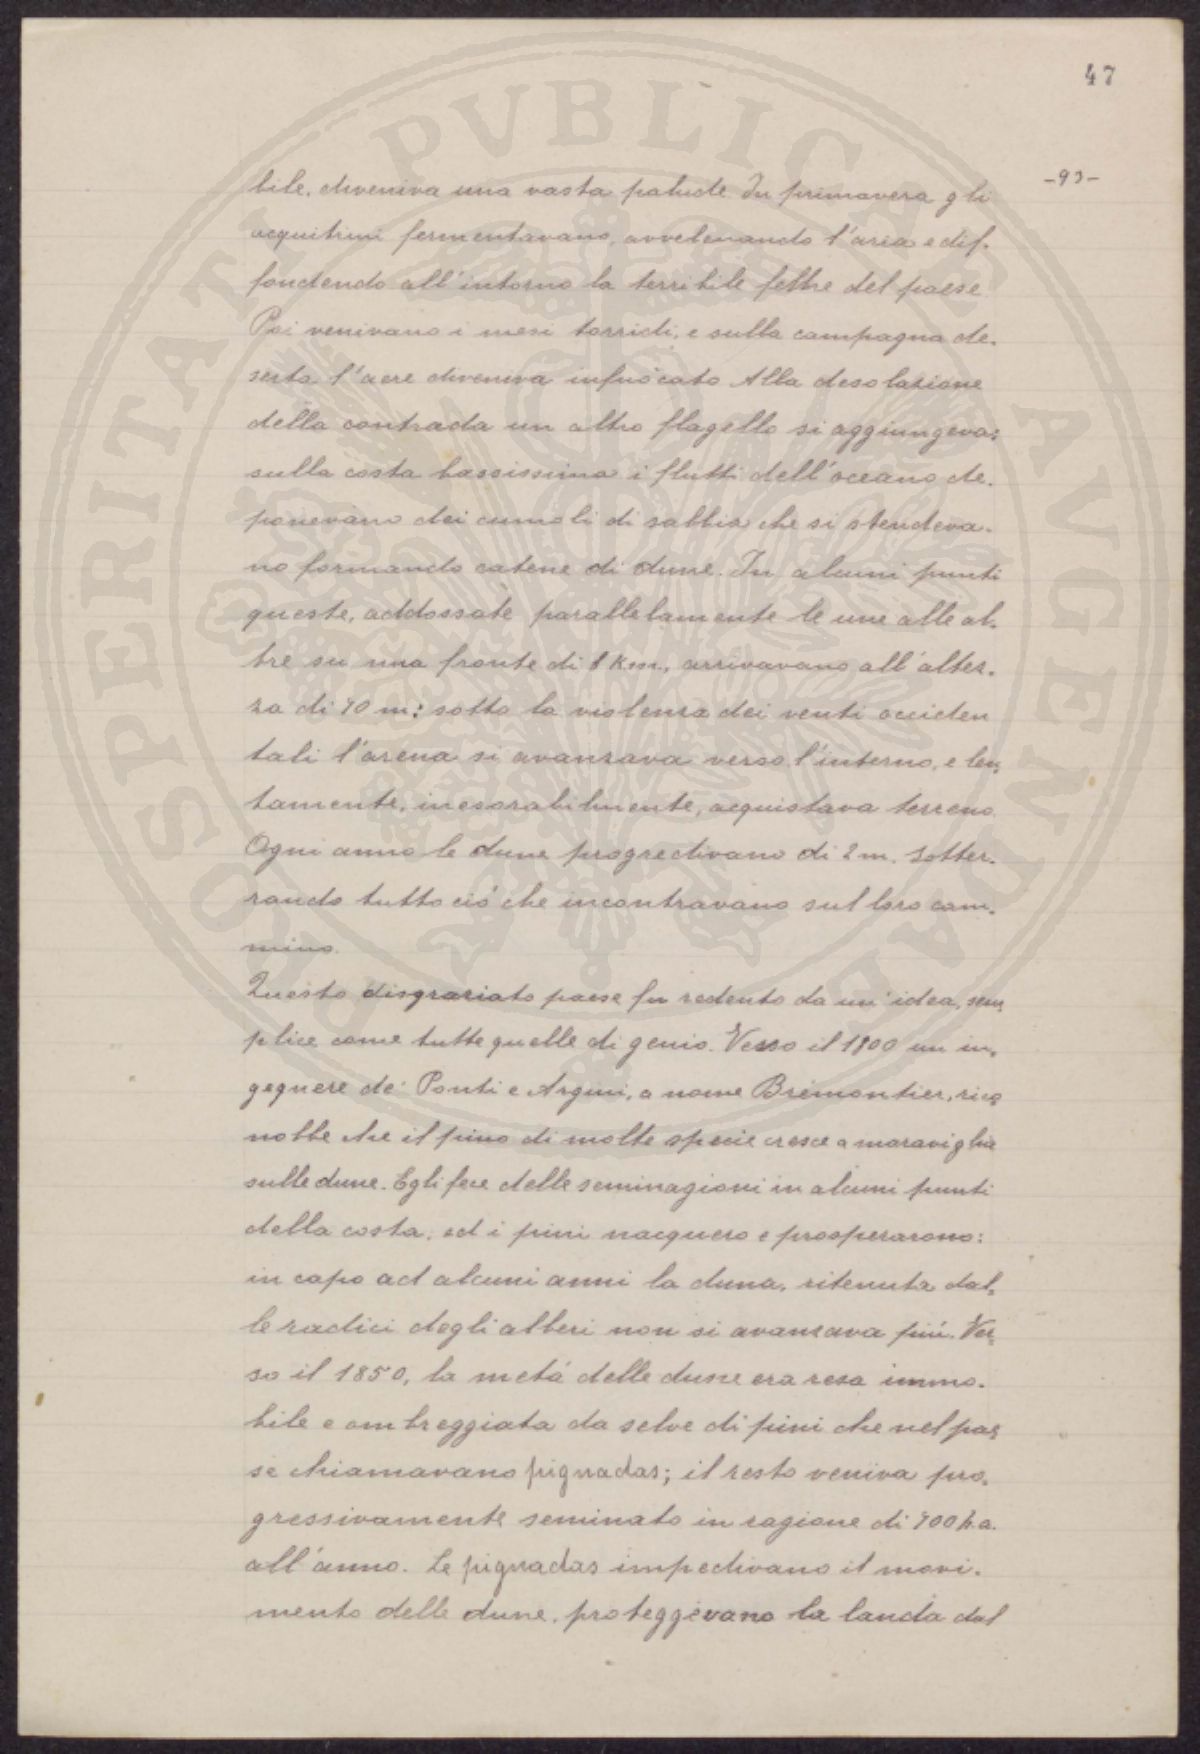 47
-93-
bile, diveniva una vasta palude. In primavera gli
acquitrini fermentavano, avvelenando l'aria e dif-
fondendo all'intorno la terribile febbre del paese.
Poi venivano i mesi torridi, e sulla campagna de-
serta l'aere diveniva infuocato. Alla desolazione
della contrada un altro flagello si aggiungeva:
sulla costa bassissima i flutti dell'oceano de-
ponevano dei cumoli di sabbia che si stendeva-
no formando catene di dune. In alcuni punti
queste, addossate parallelamente le une alle al-
tre su una fronte di 8 Km, arrivavano all'altez-
za di 70 m: sotto la violenza dei venti occiden
tali l'arena si avanzava verso l'interno, e len-
tamente, inesorabilmente, acquistava terreno.
Ogni anno le dune progredivano di 2 m. sotter-
rando tutto ciò che incontravano sul loro cam-
mino.
Questo disgraziato paese fu redento da un'idea, sem-
plice come tutte quelle di genio. Verso il 1800 un in-
gegnere de' Ponti e Argini, a nome Brémontier, rico-
nobbe che il pino di molte specie cresce a maraviglia
sulle dune. Egli fece delle seminagioni in alcuni punti
della costa, ed i pini nacquero e prosperarono:
in capo ad alcuni anni la duna, ritenuta dal-
le radici degli alberi non si avanzava più. Ver-
so il 1850, la metà delle dune era resa immo-
bile e ombreggiata da selve di pini che nel pae-
se chiamavano pignadas; il resto veniva pro-
gressivamente seminato in ragione di 700 ha.
all'anno. Le pignadas impedivano il movi-
mento delle dune, proteggevano la landa dal
PROSPERITATI PVBLICAE AVGENDAE